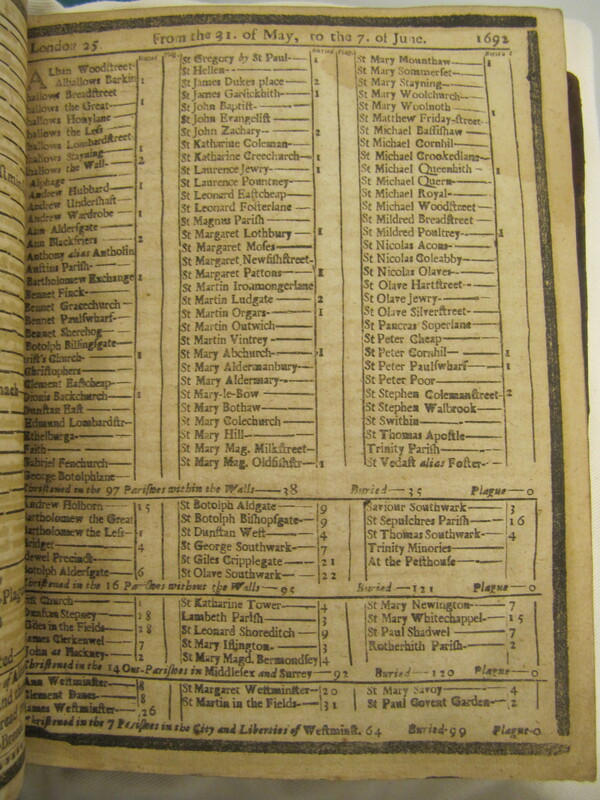 London 25. From the 31. of May, to the 7. of June. 1692
Buried Plag.
Alban Woodstreet
Alhallows Barkin 1
hallows Breadstreet
hallows the Great 1
hallows Honylane
hallows the Less
hallows Lombardstreet
hallows Stayning 1
hallows the Wall 2
Alphage
Andrew Hubbard 1
Andrew Undershaft
Andrew Wardrobe 1
Ann Aldersgate
Ann Blackfriers 2
Anthony alias Antholin
Austins Parish
Bartholomew Exchange 1
Bennet Finck
Bennet Gracechurch
Bennet Paulswharf
Bennet Sherehog
Botolph Billingsgate
rist's Church 1
Christophers
Clement Eastcheap
Dionis Backchurch 1
Dunstan East
Edmund Lombardstr
Ethelburga
Faith
Gabriel Fenchurch
George Botolphlane
Buried Plag.
St Gregory by St Paul 1
St Hellen
St James Dukes place 2
St James Garlickhith 1
St John Baptist
St John Evangelist
St John Zachary 2
St Katharine Coleman
St Katharine Creechurch 1
St Laurence Jewry 1
St Laurence Pountney
St Leonard Eastcheap
St Leonard Fosterlane
St Magnus Parish
St Margaret Lothbury 1
St Margaret Moses
St Margaret Newfishstreet
St Margaret Pattons 1
St Martin Iroamongerlane
St Martin Ludgate 2
St Martin Orgars 1
St Martin Outwich
St Martin Vintrey
St Mary Abchurch 1
St Mary Aldermanbury
St Mary Aldermary
St Mary-le-Bow
St Mary Bothaw
St Mary Colechurch
St Mary Hill
St Mary Mag. Milkstreet
St Mary Mag. Oldfishstr 1
St Mary Mounthaw 1
St Mary Sommerset
St Mary Stayning
St Mary Woolchurch
St Mary Woolnoth 1
St Matthew Friday-street
St Michael Bassishaw
St Michael Cornhil
St Michael Crookedlane
St Michael Queenhith 1
St Michael Quern
St Michael Royal
St Michael Woodstreet
St Mildred Breadstreet
St Mildred Poultrey 1
St Nicolas Acons
St Nicolas Coleabby
St Nicolas Olaves
St Olave Hartstreet
St Olave Jewry
St Olave Silverstreet
St Pancras Soperlane
St Peter Cheap
St Peter Cornhil 1
St Peter Paulswharf 1
St Peter Poor
St Stephen Colemanstreet 2
St Stephen Walbrook
St Swithin
St Thomas Apostle
Trinity Parish
St Vedast alias Foster
Christened in the 97 Parishes within the Walls 38 Buried 35 Plague 0
Andrew Holborn 15
artholomew the Great
artholomew the Less 1
Bridget 4
dewel Precinct
Botolph Aldersgate 6
St Botolph Aldgate 9
St Botolph Bishopsgate 9
St Dunstan West 4
St George Southwark 7
St Giles Cripplegate 21
St Olave Southwark 22
Saviour Southwark 3
St Sepulchres Parish 16
St Thomas Southwark 4
Trinity Minories
At the Pesthouse
Christened in the 16 Parishes without the Walls 95 Buried 121 Plague 0
rist Church 1
Dunstan Stepney 28
Giles in the Fields 28
James Clerkenwel 7
John at Hackney 2
St Katharine Tower 4
Lambeth Parish 3
St Leonard Shoreditch 9
St Mary Islington 3
St Mary Magd. Bermondsey 4
St Mary Newington 7
St Mary Whitechappel 15
St Paul Shadwel 7
Rotherhith Parish 2
Christened in the 14 Out-Parishes in Middlesex and Surrey 92 Buried 120 Plague 0
Ann Westminster 8
Clement Danes 8
James Westminster 26
St Margaret Westminster 20
St Martin in the Fields 31
St Mary Savoy 4
St Paul Covent Garden 2
Christened in the 7 Parishes in the City and Liberties of Westminst. 64 Buried 99 Plague 0